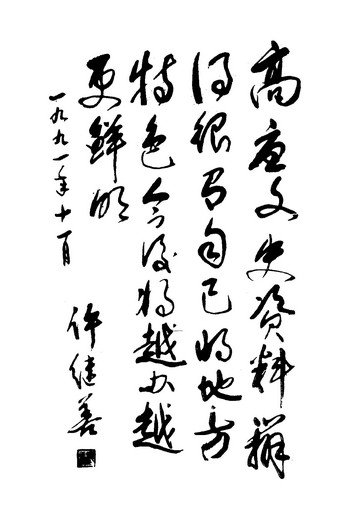 高安文史资料辦
得很有自己的地方
特色今后将越办越
更鲜明
一九九一年十一月
许继善